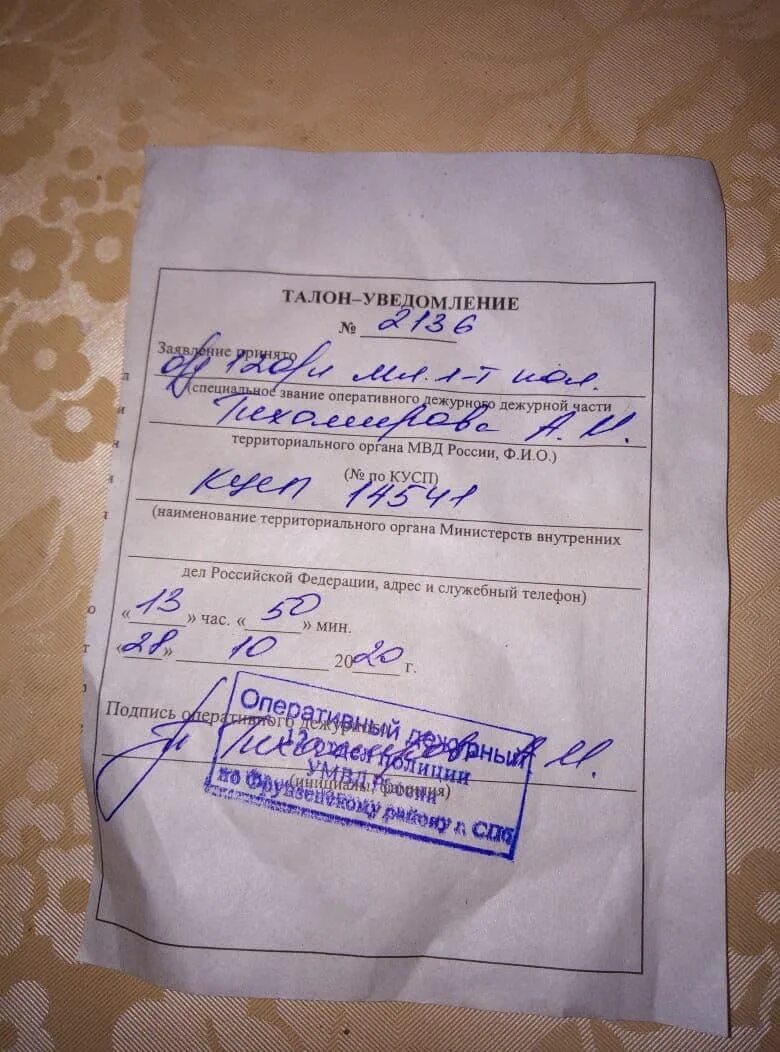 ТАЛОН–УВЕДОМЛЕНИЕ
№ 2136
Заявление принято
о/д 12 о/п мл. л-т пол.
(специальное звание оперативного дежурного дежурной части
Тихомирова А. И.
территориального органа МВД России, Ф.И.О.)
(№ по КУСП)
КУСП 14541
(наименование территориального органа Министерств внутренних
дел Российской Федерации, адрес и служебный телефон)
«13» час. «50» мин.
«28» 10 2020 г.
Подпись оперативного дежурного
Тихомирова А. И.
(инициалы, фамилия)
Оперативный дежурный
12 отдел полиции
УМВД России
по Фрунзенскому району г. СПб